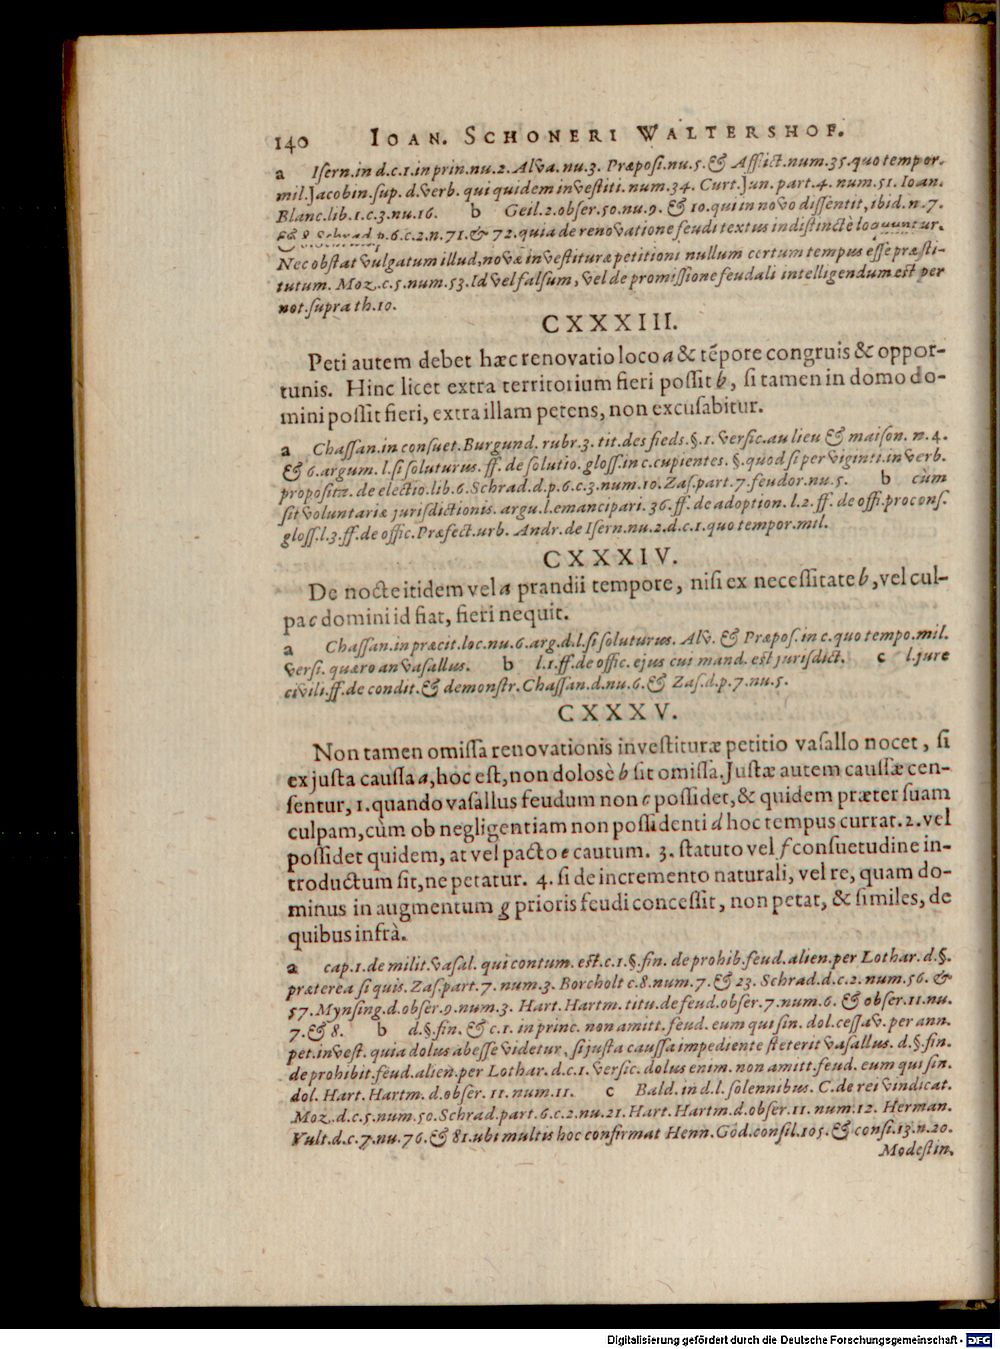 140 IOAN. SCHONERI WALTERSHOF.
a Isern. in d. c. 1. in prin. nu. 2. Alva. nu. 3. Præposi. nu. 5. & Afflict. num. 35. quo tempor.
mil. Jacobin. sup. d. verb. qui quidem investiti. num. 34. Curt. Jun. part. 4. num. 51. Ioan.
Blanc. lib. 1. c. 3. nu. 16. b Geil. 2. obser. 50. nu. 9. & 10. qui in novo dissentit, ibid. n. 7.
& 8. Schrad. p. 6. c. 2. n. 71. & 72. quia de renovatione feudi textus indistinctè loquuntur.
Nec obstat vulgatum illud, novæ investituræ petitioni nullum certum tempus esse præsti-
tutum. Moz. c. 5. num. 53. Id vel falsum, vel de promissione feudali intelligendum est per
not. supra th. 10.
CXXXIII.
Peti autem debet hæc renovatio loco a & tēpore congruis & oppor-
tunis. Hinc licet extra territorium fieri possit b, si tamen in domo do-
mini possit fieri, extra illam petens, non excusabitur.
a Chassan. in consuet. Burgund. rubr. 3. tit. des fieds. §. 1. versic. au lieu & maison. n. 4.
& 6. argum. l. si soluturus. ff. de solutio. gloss. in c. cupientes. §. quod si per viginti. in verb.
propositæ. de electio. lib. 6. Schrad. d. p. 6. c. 3. num. 10. Zas. part. 7. feudor. nu. 5. b cùm
sit voluntariæ jurisdictionis. argu. l. emancipari. 36. ff. de adoption. l. 2. ff. de offi. procons.
gloss. l. 3. ff. de offic. Præfect. urb. Andr. de Isern. nu. 2. d. c. 1. quo tempor. mil.
CXXXIV.
De nocte itidem vel a prandii tempore, nisi ex necessitate b, vel cul-
pa c domini id fiat, fieri nequit.
a Chassan. in præcit. loc. nu. 6. arg. d. l. si soluturus. Alv. & Præpos. in c. quo tempo. mil.
versi. quæro an vasallus. b l. 1. ff. de offic. ejus cui mand. est jurisdict. c l. jure
civili. ff. de condit. & demonstr. Chassan. d. nu. 6. & Zas. d. p. 7. nu. 5.
CXXXV.
Non tamen omissa renovationis investituræ petitio vasallo nocet, si
ex justa caussa a, hoc est, non dolosè b sit omissa. Justæ autem caussæ cen-
sentur, 1. quando vasallus feudum non c possidet, & quidem præter suam
culpam, cùm ob negligentiam non possidenti d hoc tempus currat. 2. vel
possidet quidem, at vel pacto e cautum. 3. statuto vel f consuetudine in-
troductum sit, ne petatur. 4. si de incremento naturali, vel re, quam do-
minus in augmentum g prioris feudi concessit, non petat, & similes, de
quibus infrà.
a cap. 1. de milit. vasal. qui contum. est. c. 1. §. fin. de prohib. feud. alien. per Lothar. d. §.
præterea si quis. Zas. part. 7. num. 3. Borcholt c. 8. num. 7. & 23. Schrad. d. c. 2. num. 56. &
57. Mynsing. d. obser. 9. num. 3. Hart. Hartm. titu. de feud. obser. 7. num. 6. & obser. 11. nu.
7. & 8. b d. §. fin. & c. 1. in princ. non amitt. feud. eum qui sin. dol. cessav. per ann.
pet. invest. quia dolus abesse videtur, si justa caussa impediente steterit vasallus. d. §. fin.
de prohibit. feud. alien. per Lothar. d. c. 1. versic. dolus enim. non amitt. feud. eum qui sin.
dol. Hart. Hartm. d. obser. 11. num. 11. c Bald. in d. l. solennibus. C. de rei vindicat.
Moz. d. c. 5. num. 50. Schrad. part. 6. c. 2. nu. 21. Hart. Hartm. d. obser. 11. num. 12. Herman.
Vult. d. c. 7. nu. 76. & 81. ubi multis hoc confirmat Henn. God. consil. 105. & consi. 13. n. 20.
Modestin.
Digitalisierung gefördert durch die Deutsche Forschungsgemeinschaft - DFG